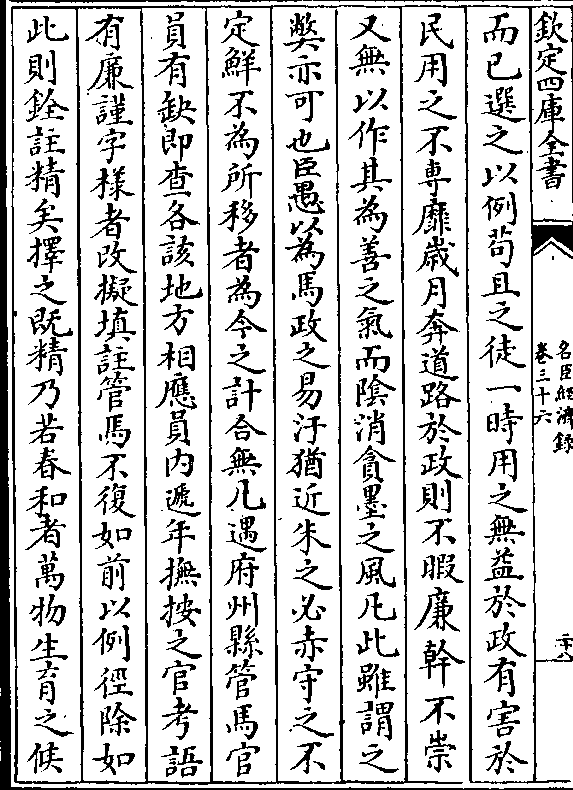 欽定四庫全書
名臣經濟錄
卷三十六
而已選之以例苟且之徒一時用之無益於政有害於
民用之不專靡歲月奔道路於政則不暇廉幹不崇
又無以作其為善之氣而陰消貪墨之風凡此雖謂之
弊亦可也臣愚以為馬政之易汙猶近朱之必赤守之不
定鮮不為所移者為今之計合無凡遇府州縣管馬官
員有缺即查各該地方相應員內遞年撫按之官考語
有廉謹字様者改擬填註管馬不復如前以例徑除如
此則銓註精矣擇之既精乃若春和者萬物生育之候